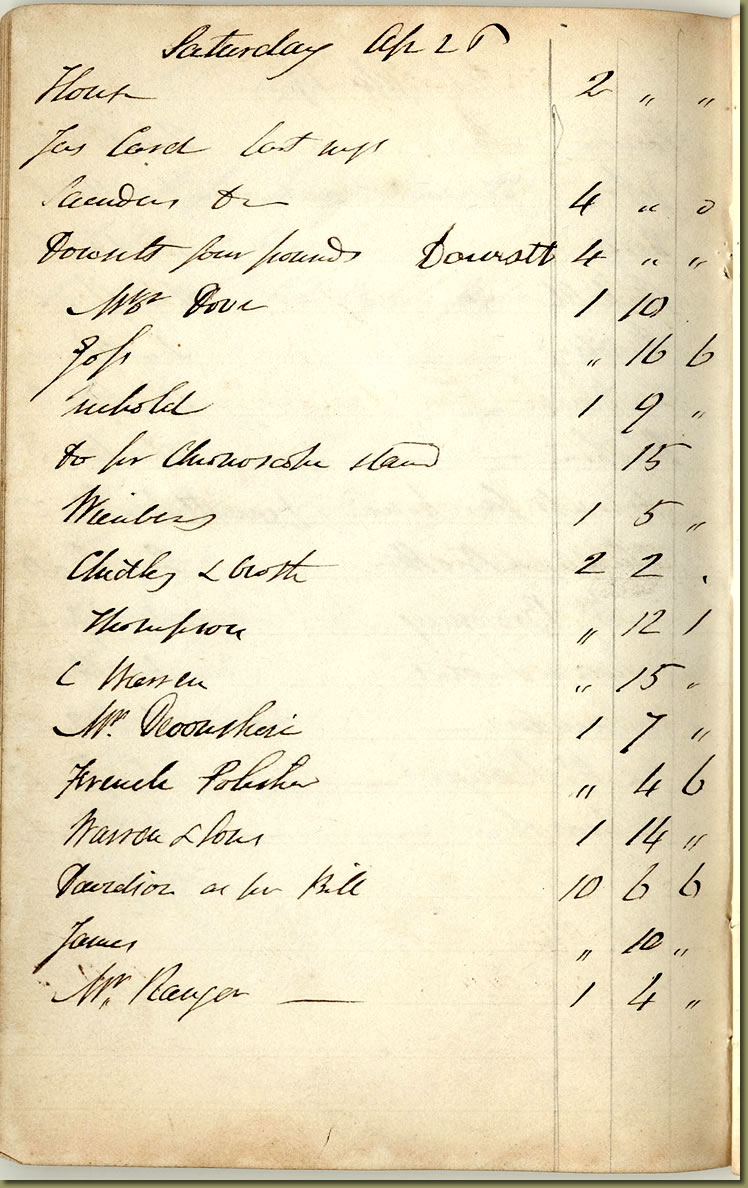 Saturday Ap 28
House 2 " "
Jas Card last
Saunders Do 4 " 0
Dowsett four pounds Dowsett 4 " "
Mrs Dove 1 10
Goss " 16 6
1 9 "
Do for Chronoscope stand 15
1 5 "
Chidley & 2 2
Thompson " 12 1
C Warren " 15 "
Mr. Devonshire 1 7 "
French Polisher " 4 6
Warren & Sons 1 14 "
Davidson as per Bill 10 6 6
James " 10 "
Mr. Ranger — 1 4 "